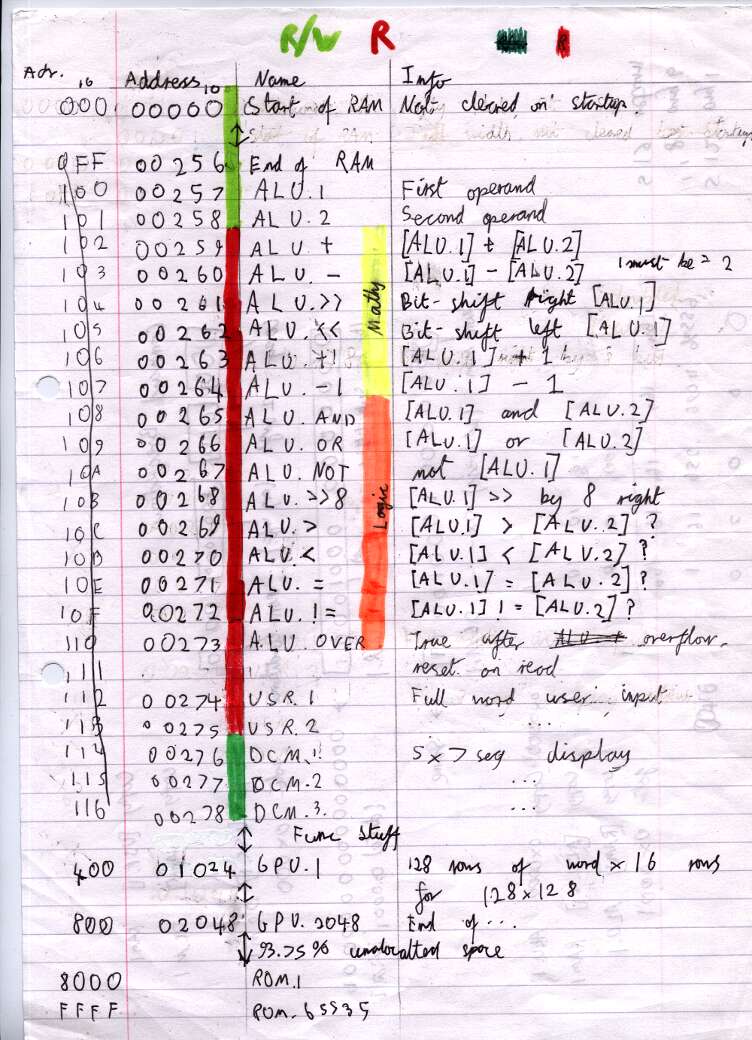 R/W R R
Adr. 16 Address 10 Name Info
000 00000 Start of RAM Not cleared on startup.
0FF 00256 End of RAM
100 00257 ALU.1 First operand
101 00258 ALU.2 Second operand
102 00259 ALU + [ALU.1] + [ALU.2]
103 00260 ALU - [ALU.1] - [ALU.2] 1 must be = 2
104 00261 ALU.>> Bit-shift right [ALU.1]
105 00262 ALU.<< Bit-shift left [ALU.1]
106 00263 ALU +1 [ALU.1] + 1
107 00264 ALU. -1 [ALU.1] - 1
Maths
108 00265 ALU. AND [ALU.1] and [ALU.2]
109 00266 ALU. OR [ALU.1] or [ALU.2]
10A 00267 ALU. NOT not [ALU.1]
10B 00268 ALU.>>8 [ALU.1] >> by 8 right
10C 00269 ALU.> [ALU.1] > [ALU.2] ?
10D 00270 ALU.< [ALU.1] < [ALU.2] ?
10E 00271 ALU. = [ALU.1] = [ALU.2] ?
10F 00272 ALU. != [ALU.1] != [ALU.2] ?
110 00273 ALU OVER True after overflow.
Logic
111 reset on read
112 00274 USR.1 Full word user input
113 00275 USR.2 ...
114 00276 DCM.1 5x7 seg display
115 00277 DCM.2 ...
116 00278 DCM.3 ...
Func stuff
400 01024 GPU.1 128 rows of word x 16 rows
for 128x128
800 02048 GPU.2048 End of ...
93.75% space
8000 ROM.1
FFFF ROM.65535